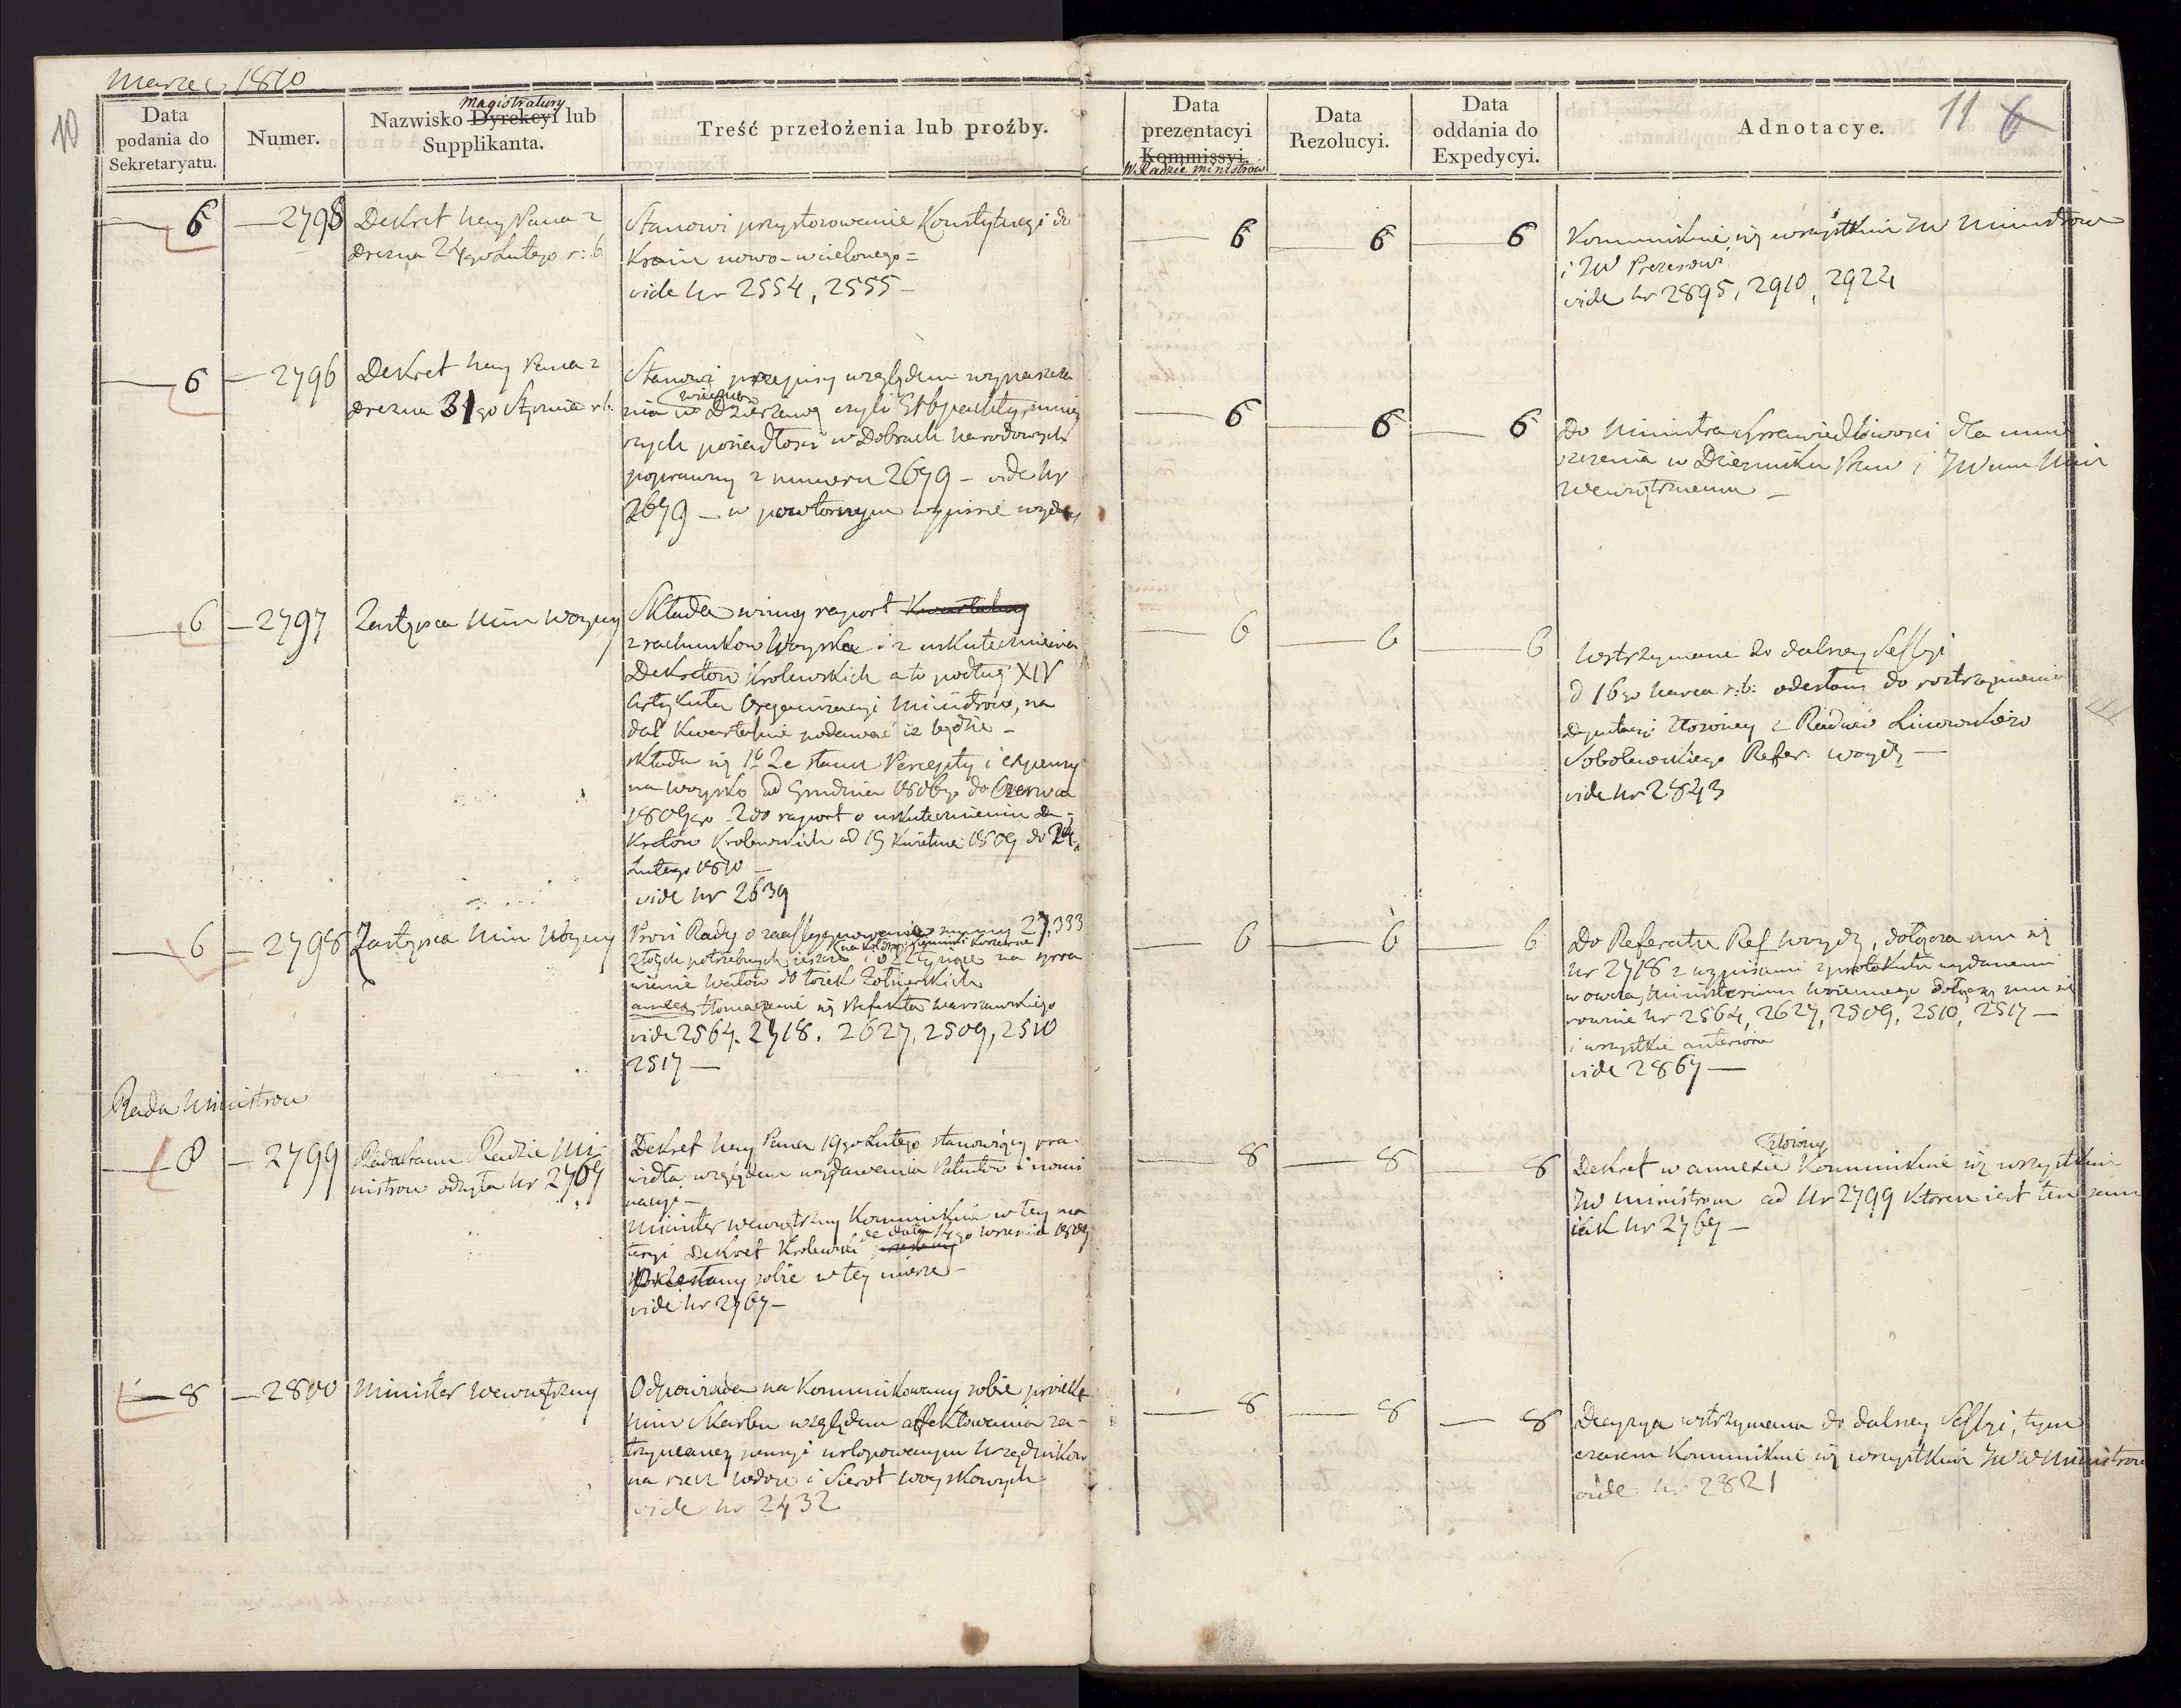 Marzec 1810
10
11 6
Data podania do Sekretaryatu.
Numer.
Nazwisko Dyrekcyi lub Supplikanta.
Magistratury
Treść przełożenia lub proźby.
Data prezentacyi Kommissyi.
w Radzie Ministrów
Data Rezolucyi.
Data oddania do Expedycyi.
Adnotacye.
6 — 2795
Dekret Nay Pana z
Drezna 24go Lutego r: b
Stanowi przystosowanie Konstytucyi do
Kraiu nowo-wcielonego =
vide Nr 2554, 2555 —
6 6 6
Kommunikuie się wszystkim JW Ministrom
i JW Prezesowi
vide Nr 2895, 2910, 2924
6 — 2796
Dekret Nay Pana z
Drezna 31go Stycznia r b.
Stanowi przepisy względem wypuszcza
nia w Dzierzawę czyli
wieczną
szych posiadłosci w Dobrach narodowych
poprawny z numeru 2679 — vide Nr
2679 — w powtornym wypisie wydany
6 6 6
Do Ministra Sprawiedliwosci dla umie
szczenia w Dzienniku Praw i JWmu Mini
Wewnętrznemu —
6 — 2797
Zastępca Min Woyny
Składa winny raport Kwartalny
z rachunkow Woyska i z uskutecznienia
Dekretow Krolewskich a to podług XIV
Artykułu Organizacyi Ministrow, na
dal Kwartalnie podawać iż będzie —
składa się 1o Ze stanu Percepty i expensy
na Woysko od Grudnia 1806go do Czerwca
1809go — 2do raport o uskutecznieniu De-
Kretow Krolewskich od 19 Kwietnia 1809 do 24
Lutego 1810 —
vide Nr 2639
6 6 6
Wstrzymane do dalszey Sessyi
d 16go Marca r: b: odesłany do roztrząśnienia
Deputacyi złożoney z Radcow Linowskiego
Sobolewskiego Refer: Woydy —
vide Nr 2843
6 — 2798
Zastępca Min Woyny
Prosi Rady o zaassygnowanie summy 27,333
Złotych potrzebnych ieszcze na spra
wienie Watow do łożek Żołnierskich
tłomaczenie się Prefekta Warszawskiego
vide 2564. 2718. 2627, 2509, 2510
2517 —
6 6 6
Do Referatu Ref Woydy, dołącza mu się
Nr 2718 z wypisami z protokułu wydanemi
rownie Nr 2564, 2627, 2509, 2510, 2517 —
i wszystkie anteriora
vide 2867 —
Rada Ministrow
8 — 2799
Rada Stanu Radzie Mi-
nistrow odsyła Nr 2767
Dekret Nay Pana 19go Lutego stanowiący pra-
widła względem wydawania Patentow i nomi
nacyi —
Minister Wewnętrzny Kommunikuie w tey ma
teryi Dekret Krolewski de dato 14go Wrzesnia 1809
sobie w tey mierze —
vide Nr 2767 —
8 8 8
złożony
Dekret w annexie Kommunikuie się wszystkim
JW Ministrom ad Nr 2799 ktoren iest ten sam
iak Nr 2767 —
8 — 2800
Minister Wewnętrzny
Odpowiada na Kommunikowany sobie proiekt
Min Skarbu względem affektowania za-
trzymaney pensyi urlopowanym Urzędnikom
na rzecz Wdow i Sierot Woyskowych
vide Nr 2432
8 8 8
Decyzya wstrzymana do dalszey Sessyi, tym
czasem Kommunikuie się wszystkim JWW Ministrom
vide Nr 2821